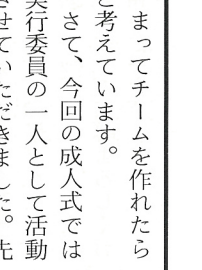 まってチームを作れたら
と考えています。
さて、今回の成人式では
実行委員の一人として活動
させていただきました。先